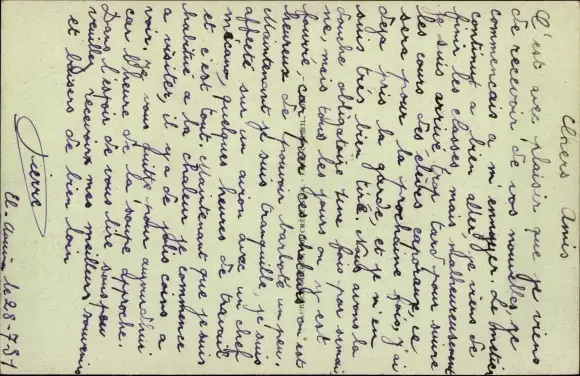 Chers Amis
C'est avec plaisir que je viens
de recevoir de vos nouvelles, je
commençais à m'ennuyer. Le moral
continue à bien aller je viens de
finir les classes, mais malheureusement
je suis arrivé trop tard pour suivre
les cours des élèves caporaux, ce
sera pour la prochaine fois, j'ai
déjà pris la garde, et je m'en
suis très bien tiré. Nous avons la
douche obligatoire une fois par semai
ne, mais tous les jours on y est
fourré, car par ces chaleurs on est
heureux de pouvoir barboter un peu.
Maintenant je suis tranquille, je suis
affecté sur un avion avec un chef
mécano, quelques heures de travail
et c'est tout. Maintenant que je suis
habitué à la chaleur je commence
à visiter, il y a de jolis coins à
voir. Je vous quitte pour aujourd'hui
car l'heure de la soupe approche.
Dans l'espoir de vous lire sous peu
veuillez recevoir mes meilleurs souvenirs
et baisers de bien loin
Pierre
le 28-7-51